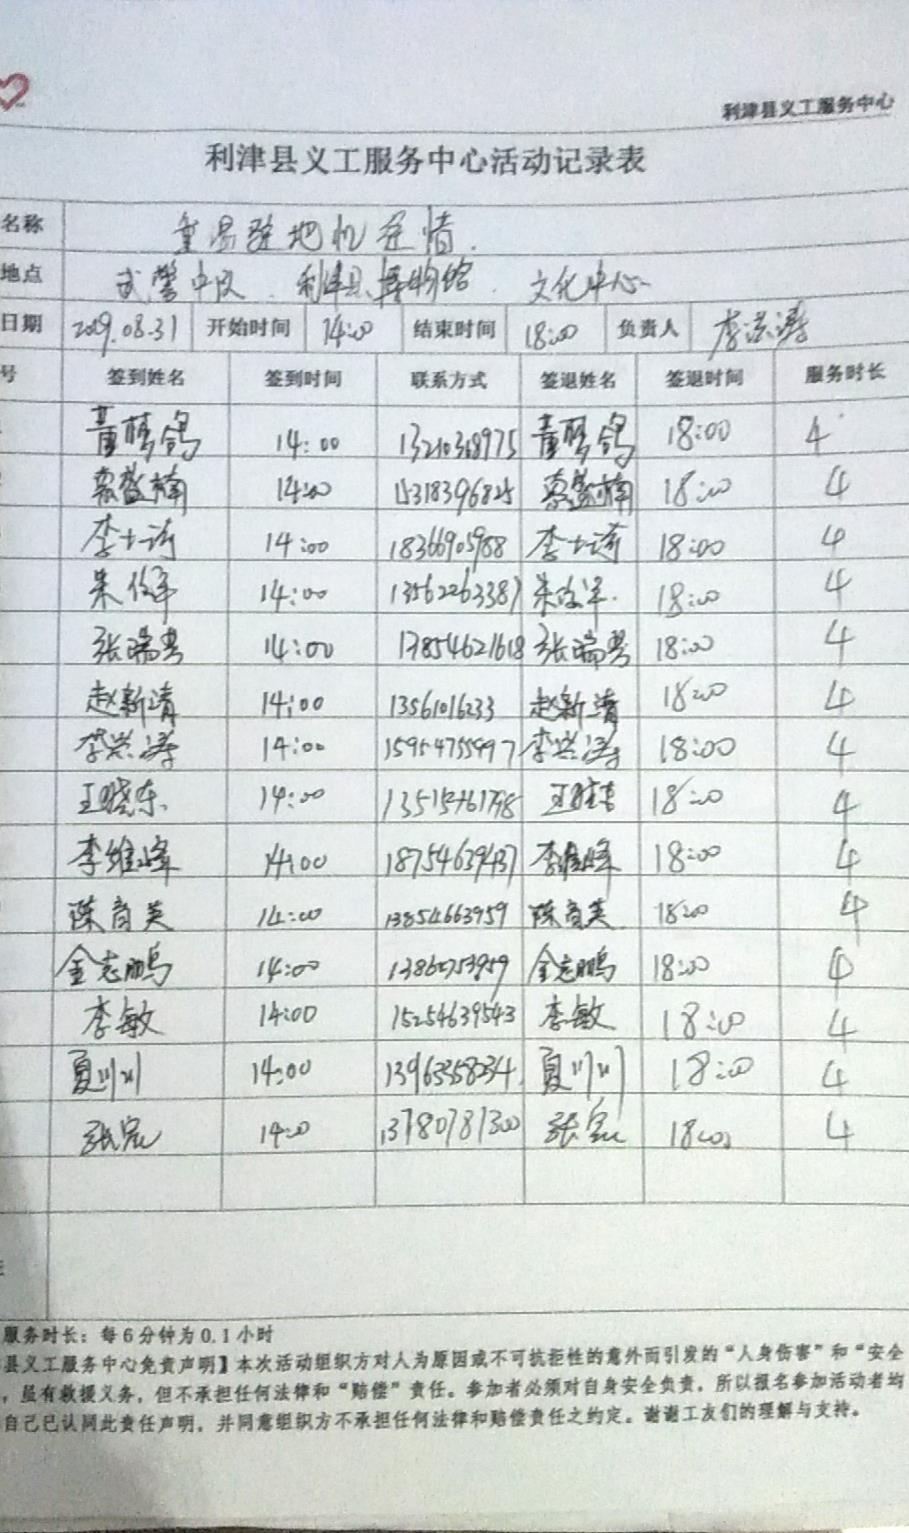 利津县义工服务中心
利津县义工服务中心活动记录表
名称 重温驻地忆军情.
地点 武警中队. 利津县博物馆. 文化中心
日期 2019.08.31 开始时间 14:00 结束时间 18:00 负责人 李洪涛
号 签到姓名 签到时间 联系方式 签退姓名 签退时间 服务时长
董梦鸽 14:00 13210368975 董梦鸽 18:00 4
綦益楠 14:00 15318396825 綦益楠 18:00 4
李士琦 14:00 18366905988 李士琦 18:00 4
朱 14:00 13562263387 朱 18:00 4
张瑞琴 14:00 13854621618 张瑞琴 18:00 4
赵新清 14:00 13561016233 赵新清 18:00 4
李洪涛 14:00 15954755997 李洪涛 18:00 4
王晓东 14:00 王晓东 18:00 4
李维峰 14:00 18754639437 李维峰 18:00 4
陈育英 14:00 13854663959 陈育英 18:00 4
金志鹏 14:00 金志鹏 18:00 4
李敏 14:00 15254639543 李敏 18:00 4
夏川川 14:00 13963358234 夏川川 18:00 4
张宏 14:00 13780781300 张宏 18:00 4
服务时长：每6分钟为0.1小时
县义工服务中心免责声明】本次活动组织方对人为原因或不可抗拒性的意外而引发的“人身伤害”和“安全
，虽有救援义务，但不承担任何法律和“赔偿”责任。参加者必须对自身安全负责，所以报名参加活动者均
自己已认同此责任声明，并同意组织方不承担任何法律和赔偿责任之约定。谢谢工友们的理解与支持。